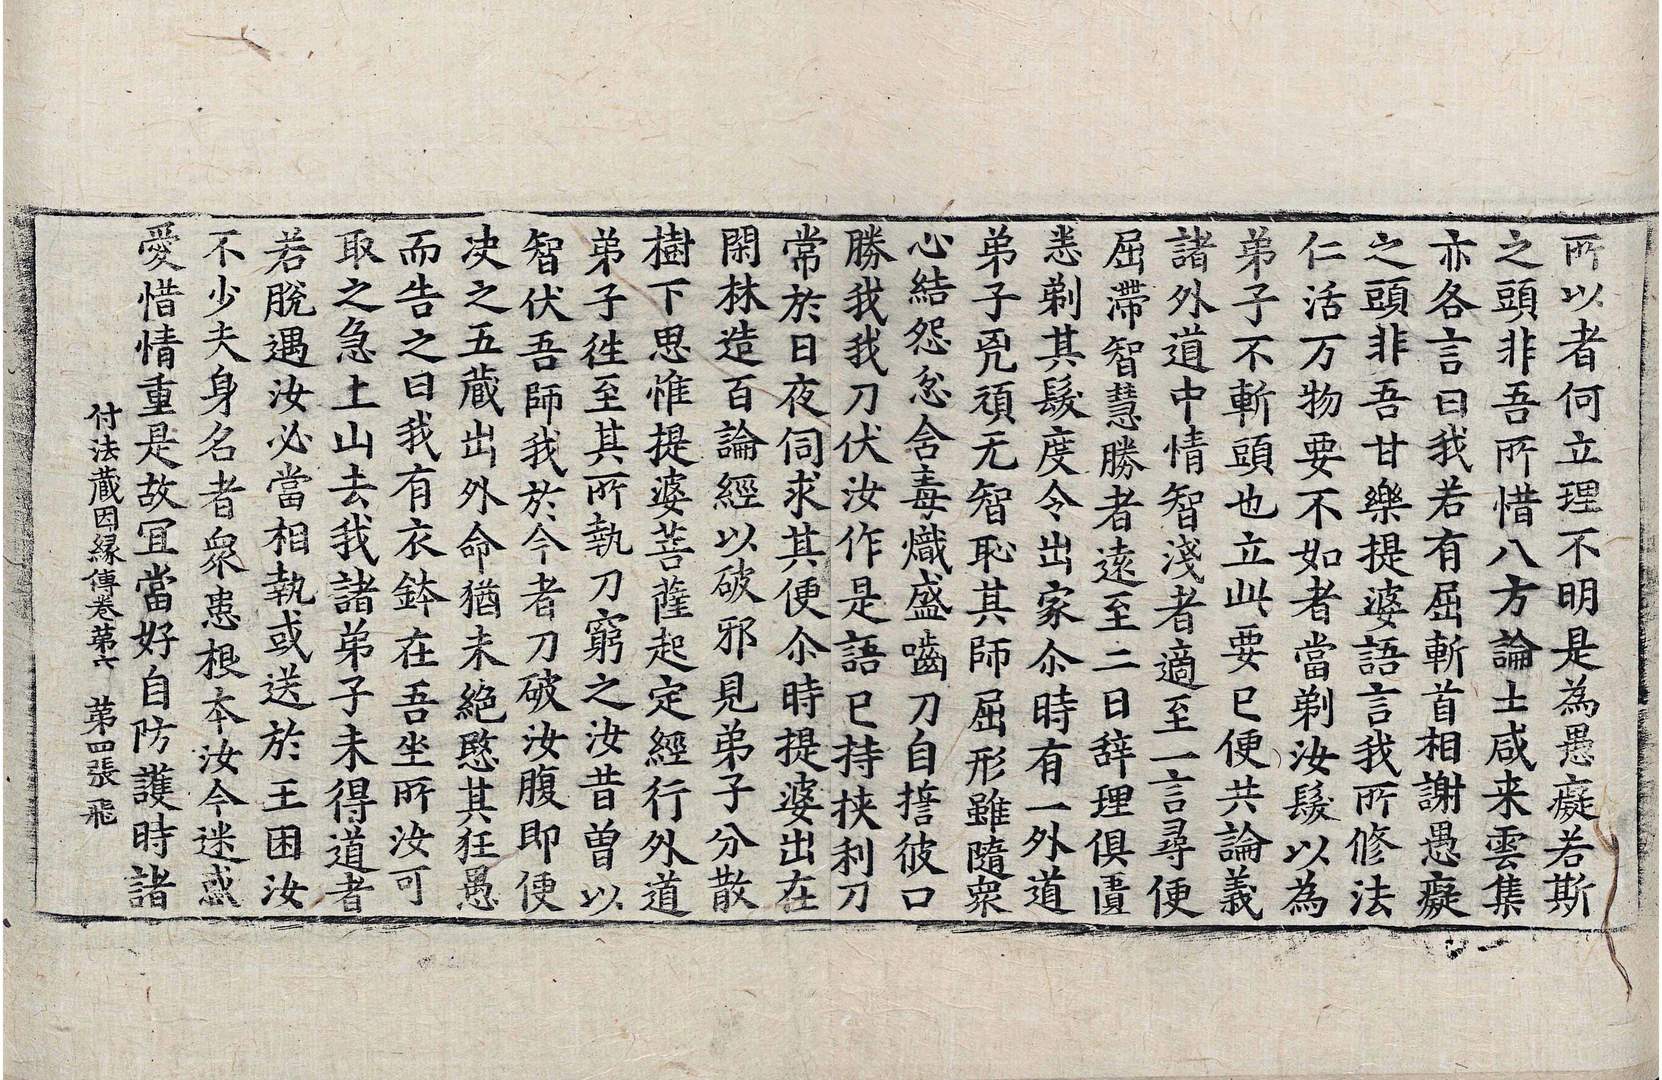 所以者何立理不明是為愚癡若斯
之頭非吾所惜八方論士咸来雲集
亦各言曰我若有屈斬首相謝愚癡
之頭非吾甘樂提婆語言我所修法
仁活万物要不如者當剃汝髮以為
弟子不斬頭也立此要已便共論義
諸外道中情智淺者適至一言尋便
屈滯智慧勝者遠至二日辞理俱匱
悉剃其髮度令出家尒時有一外道
弟子兇頑无智恥其師屈形雖隨衆
心結怨忿含毒熾盛嚙刀自擔彼口
勝我我刀伏汝作是語已持挾利刀
常於日夜伺求其便尒時提婆出在
閑林造百論經以破邪見弟子分散
樹下思惟提婆菩薩起定經行外道
弟子徃至其所執刀窮之汝昔曽以
智伏吾師我於今者刀破汝腹即便
决之五藏出外命猶未絕愍其狂愚
而告之曰我有衣鉢在吾坐所汝可
取之急上山去我諸弟子未得道者
若脫遇汝必當相執或送於王困汝
不少夫身名者衆患根本汝今迷惑
愛惜情重是故冝當好自防護時諸
付法藏因縁傳卷第六　第四張　飛